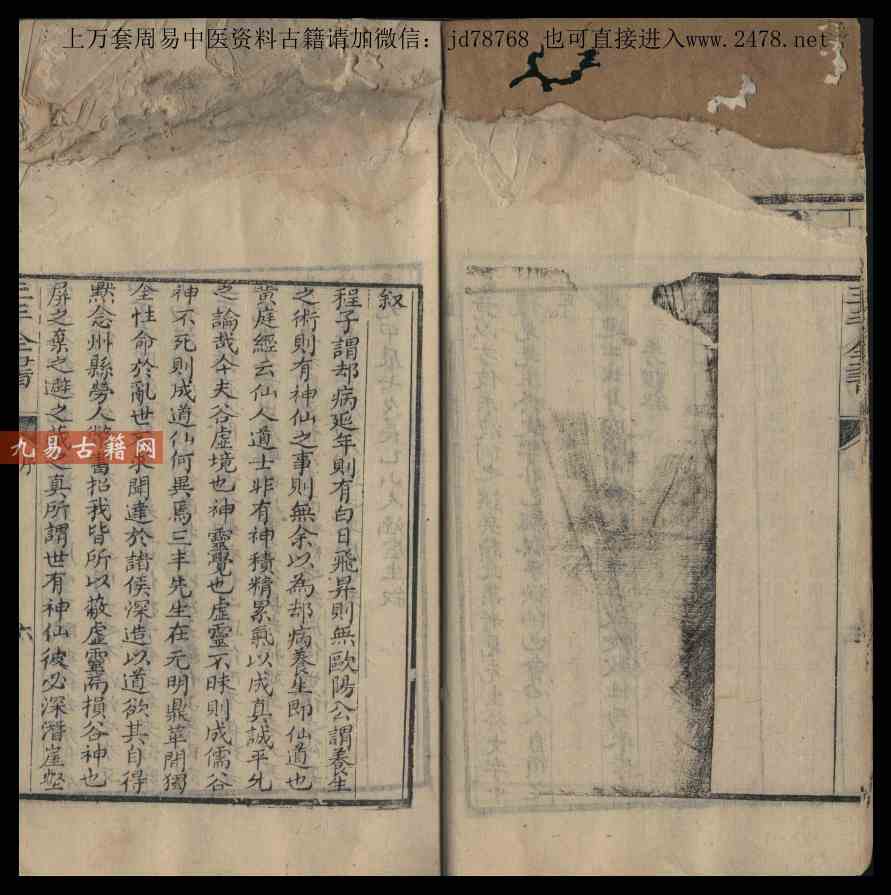 上万套周易中医资料古籍请加微信： jd78768 也可直接进入www.2478.net
九易古籍网
三丰全書
叙
程子謂却病延年則有白日飛昇則無歐陽公謂養生
之術則有神仙之事則無余以為却病養生即仙道也
黃庭經云仙人道士非有神積精累氣以成真誠平允
之論哉今夫谷虛境也神靈覺也虛靈不昧則成儒谷
神不死則成道仙何異焉三丰先生在元明鼎革間獨
全性命於亂世不求聞達於諸侯深造以道欲其自得
默念州縣勞人 書招我皆所以蔽虛靈而損谷神也
屏之棄之避之 之真所謂世有神仙彼必深潛崖壑
三丰全書
六